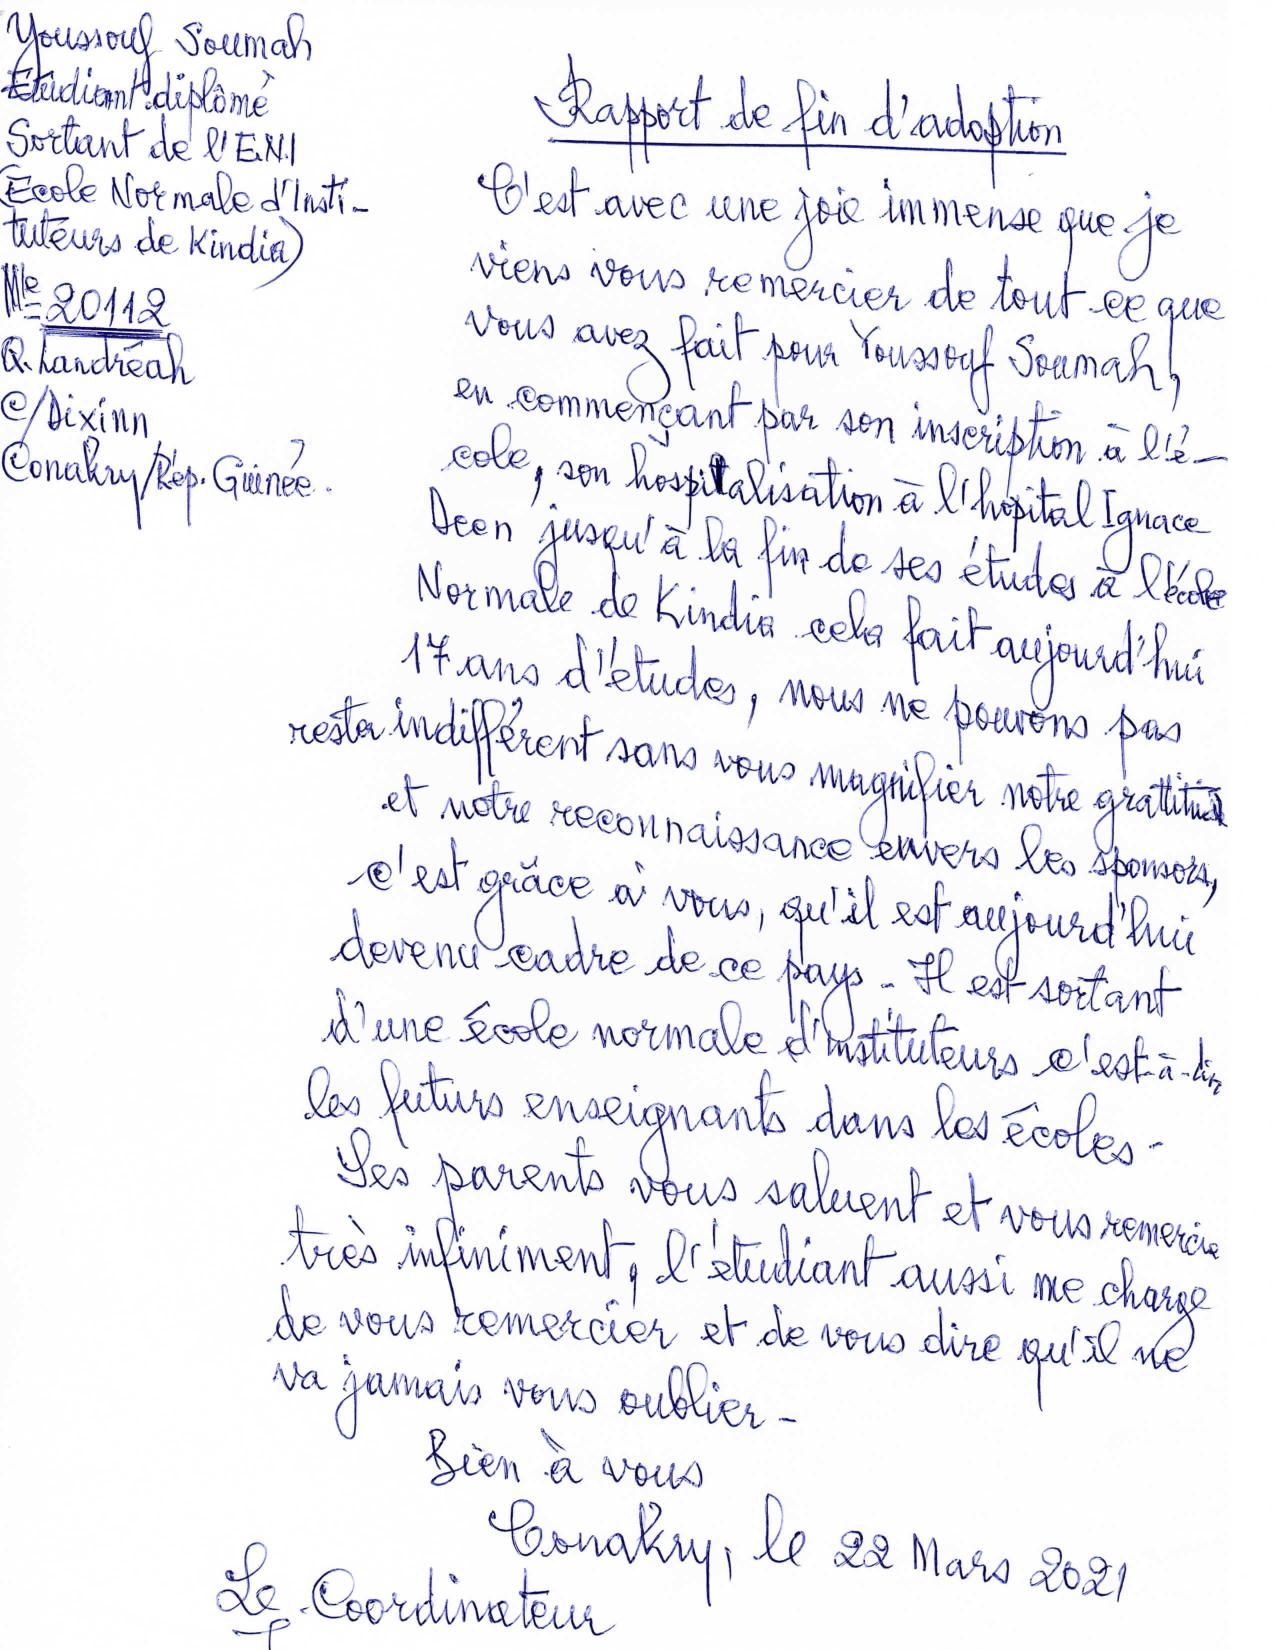 Youssouf Soumah
Etudiant diplômé
Sortant de l'E.N.I
(Ecole Normale d'Insti-
tuteurs de Kindia)
Mle 20112
Q. Landréah
C/Dixinn
Conakry/Rép. Guinée.
Rapport de fin d'adoption
C'est avec une joie immense que je
viens vous remercier de tout ce que
vous avez fait pour Youssouf Soumah,
en commençant par son inscription à l'é-
cole, son hospitalisation à l'hôpital Ignace
Deen jusqu'à la fin de ses études à l'école
Normale de Kindia cela fait aujourd'hui
17 ans d'études, nous ne pouvons pas
rester indifférent sans vous magnifier notre grattitude
et notre reconnaissance envers les sponsors,
c'est grâce à vous, qu'il est aujourd'hui
devenu cadre de ce pays - Il est sortant
d'une école normale d'instituteurs c'est-à-dire
les futurs enseignants dans les écoles -
Ses parents vous saluent et vous remercie
très infiniment, l'étudiant aussi me charge
de vous remercier et de vous dire qu'il ne
va jamais vous oublier -
Bien à vous
Conakry, le 22 Mars 2021
Le Coordinateur